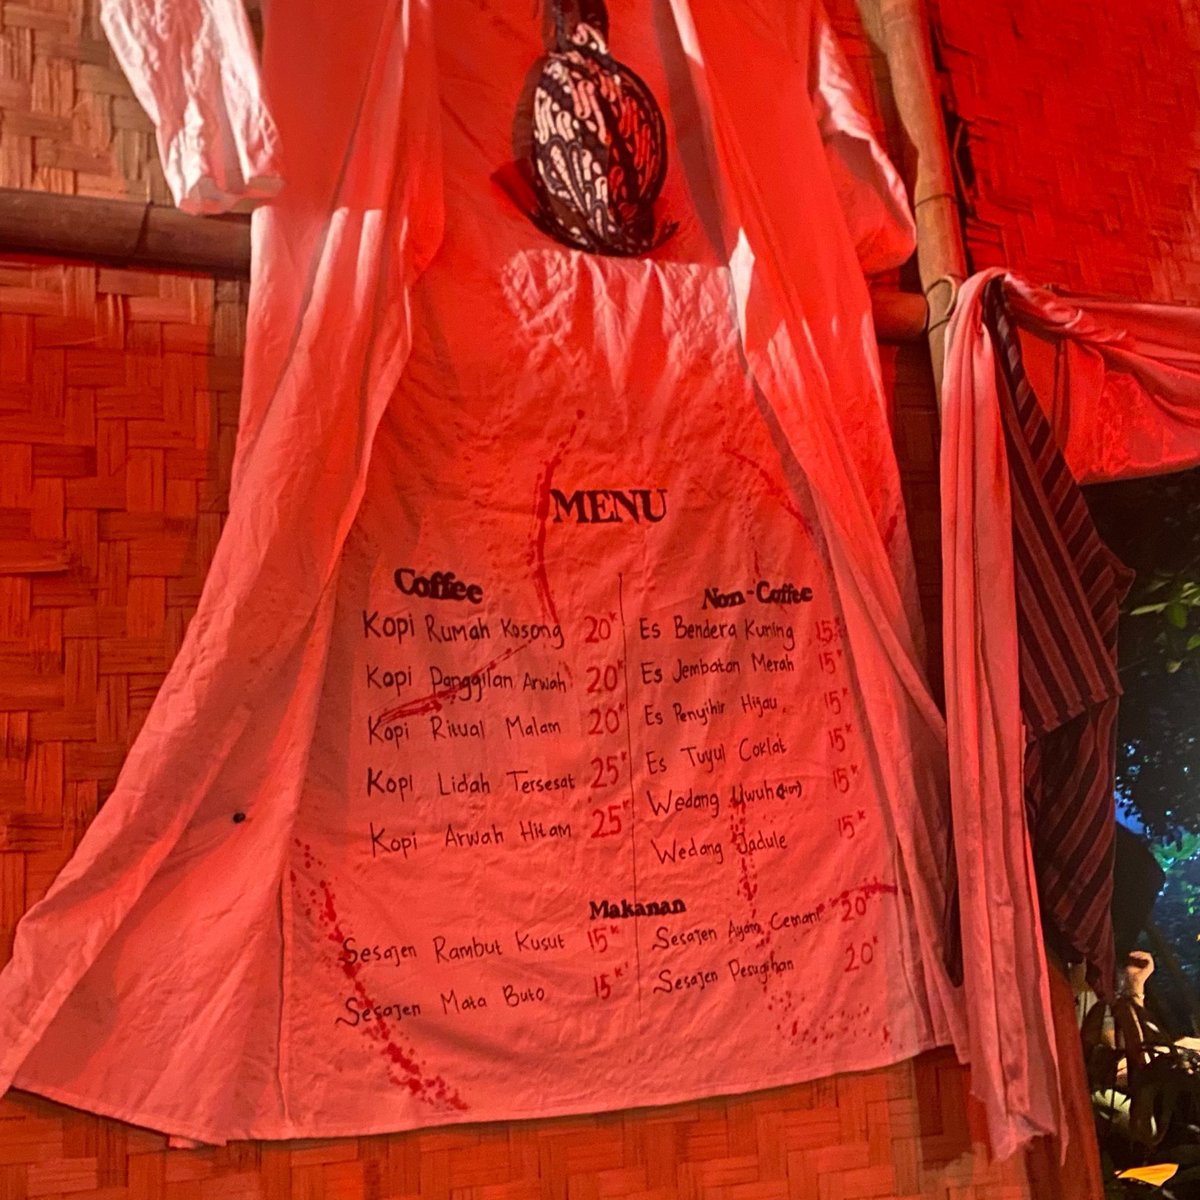 MENU
Coffee
Kopi Rumah Kosong 20K
Kopi Panggilan Arwah 20K
Kopi Ritual Malam 20K
Kopi Lidah Tersesat 25K
Kopi Arwah Hitam 25K
Non-Coffee
Es Bendera Kuning 15K
Es Jembatan Merah 15K
Es Penyihir Hijau 15K
Es Tuyul Coklat 15K
Wedang Uwuh 15K
Wedang Jadule 15K
Makanan
Sesajen Rambut Kusut 15K
Sesajen Mata Buto 15K
Sesajen Ayam Cemani 20K
Sesajen Pesugihan 20K